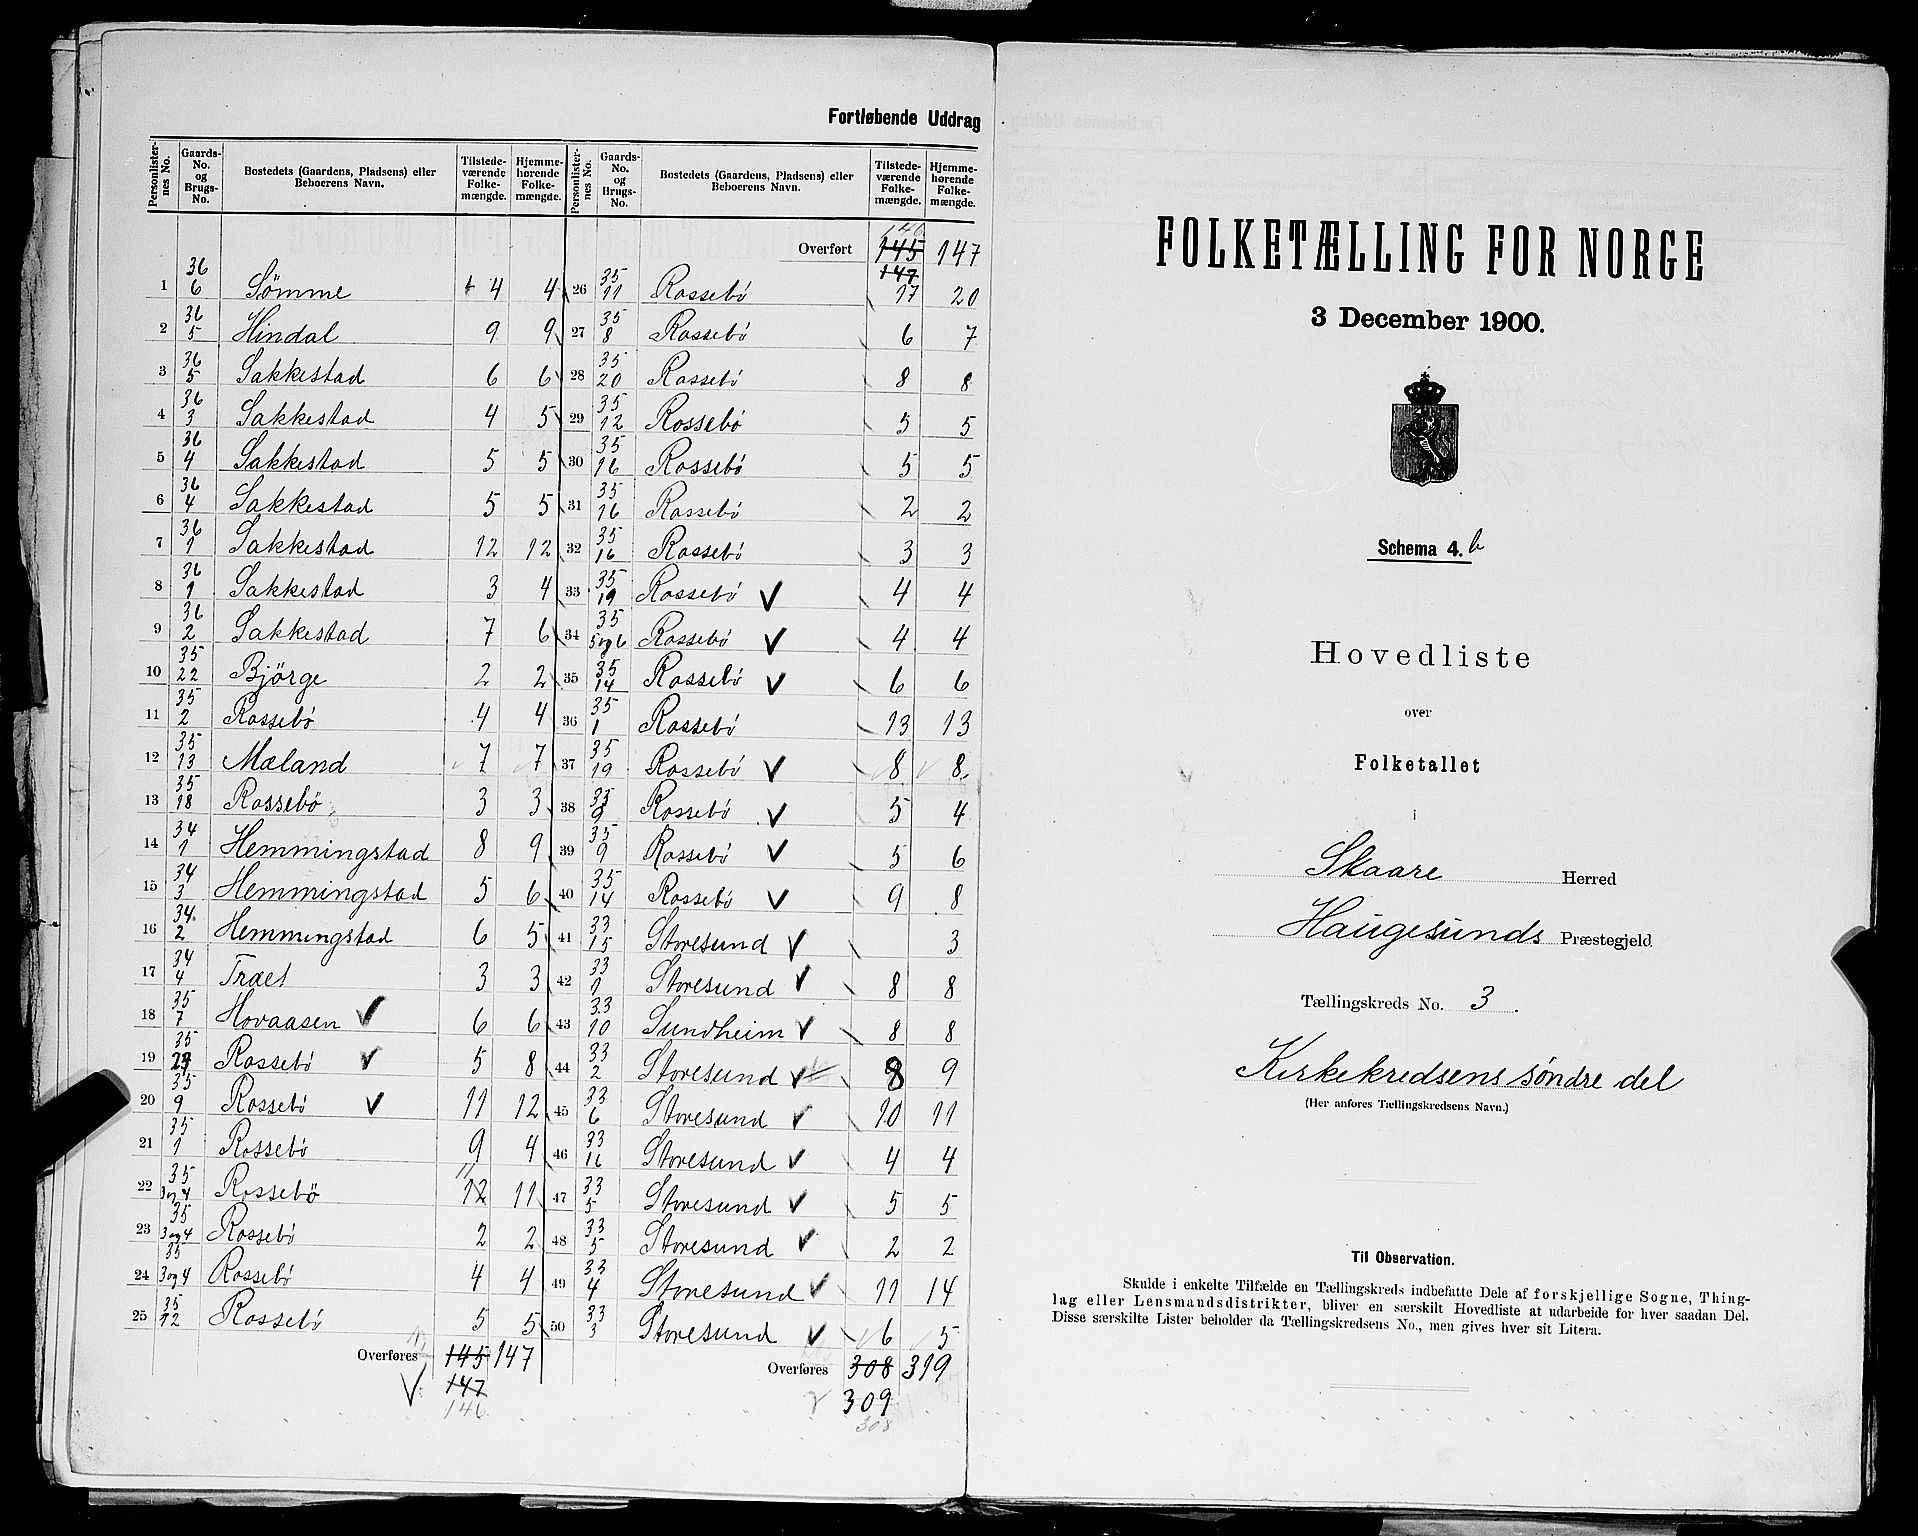 Fortløbende Uddrag
Personlisternes No. | Gaards-No. og Brugs-No. | Bostedets (Gaardens, Pladsens) eller Beboerens Navn. | Tilstedeværende Folkemængde. | Hjemmehørende Folkemængde.
1 | 36 6 | Sømme | 4 | 4
2 | 36 5 | Hindal | 9 | 9
3 | 36 5 | Sakkestad | 6 | 6
4 | 36 3 | Sakkestad | 4 | 5
5 | 36 4 | Sakkestad | 5 | 5
6 | 36 4 | Sakkestad | 5 | 5
7 | 36 1 | Sakkestad | 12 | 12
8 | 36 1 | Sakkestad | 3 | 4
9 | 36 2 | Sakkestad | 7 | 6
10 | 35 22 | Björge | 2 | 2
11 | 35 2 | Rossebö | 4 | 4
12 | 35 13 | Mæland | 7 | 7
13 | 35 18 | Rossebö | 3 | 3
14 | 34 1 | Hemmingstad | 8 | 9
15 | 34 3 | Hemmingstad | 5 | 6
16 | 34 2 | Hemmingstad | 6 | 5
17 | 34 4 | Træet | 3 | 3
18 | 35 7 | Hovaasen ✓ | 6 | 6
19 | 35 | Rossebö ✓ | 5 | 8
20 | 35 9 | Rossebö ✓ | 11 | 12
21 | 35 1 | Rossebö | 9 | 4
22 | 35 3 og 4 | Rossebö | 11 12 | 11
23 | 35 3 og 4 | Rossebö | 2 | 2
24 | 35 3 og 4 | Rossebö | 4 | 4
25 | 35 12 | Rossebö | 5 | 5
Overføres | 145 | 147
✓ 147
146
Personlisternes No. | Gaards-No. og Brugs-No. | Bostedets (Gaardens, Pladsens) eller Beboerens Navn. | Tilstedeværende Folkemængde. | Hjemmehørende Folkemængde.
146
Overført | 145 | 147
147
26 | 35 11 | Rossebö | 17 | 20
27 | 35 8 | Rossebö | 6 | 7
28 | 35 20 | Rossebö | 8 | 8
29 | 35 12 | Rossebö | 5 | 5
30 | 35 16 | Rossebö | 5 | 5
31 | 35 16 | Rossebö | 2 | 2
32 | 35 16 | Rossebö | 3 | 3
33 | 35 19 | Rossebö ✓ | 4 | 4
34 | 35 5 og 6 | Rossebö ✓ | 4 | 4
35 | 35 14 | Rossebö ✓ | 6 | 6
36 | 35 1 | Rossebö | 13 | 13
37 | 35 19 | Rossebö ✓ | 8 | 8
38 | 35 9 | Rossebö ✓ | 5 | 4
39 | 35 9 | Rossebö ✓ | 5 | 6
40 | 35 14 | Rossebö ✓ | 9 | 8
41 | 33 15 | Storesund ✓ | | 3
42 | 33 1 | Storesund ✓ | 8 | 8
43 | 33 10 | Sundheim ✓ | 8 | 8
44 | 33 2 | Storesund ✓ | 8 | 9
45 | 33 6 | Storesund ✓ | 10 | 11
46 | 33 16 | Storesund ✓ | 4 | 4
47 | 33 5 | Storesund ✓ | 5 | 5
48 | 33 5 | Storesund ✓ | 2 | 2
49 | 33 4 | Storesund ✓ | 11 | 14
50 | 33 3 | Storesund ✓ | 6 | 5
Overføres | 308 | 319
309
308
FOLKETÆLLING FOR NORGE
3 December 1900.
Schema 4. b
Hovedliste
over
Folketallet
i
Skaare Herred
Haugesunds Præstegjeld
Tællingskreds No. 3.
Kirkekredsens søndre del
(Her anføres Tællingskredsens Navn.)
Til Observation.
Skulde i enkelte Tilfælde en Tællingskreds indbefatte Dele af forskjellige Sogne, Thing-
lag eller Lensmandsdistrikter, bliver en særskilt Hovedliste at udarbeide for hver saadan Del.
Disse særskilte Lister beholder da Tællingskredsens No., men gives hver sit Litera.